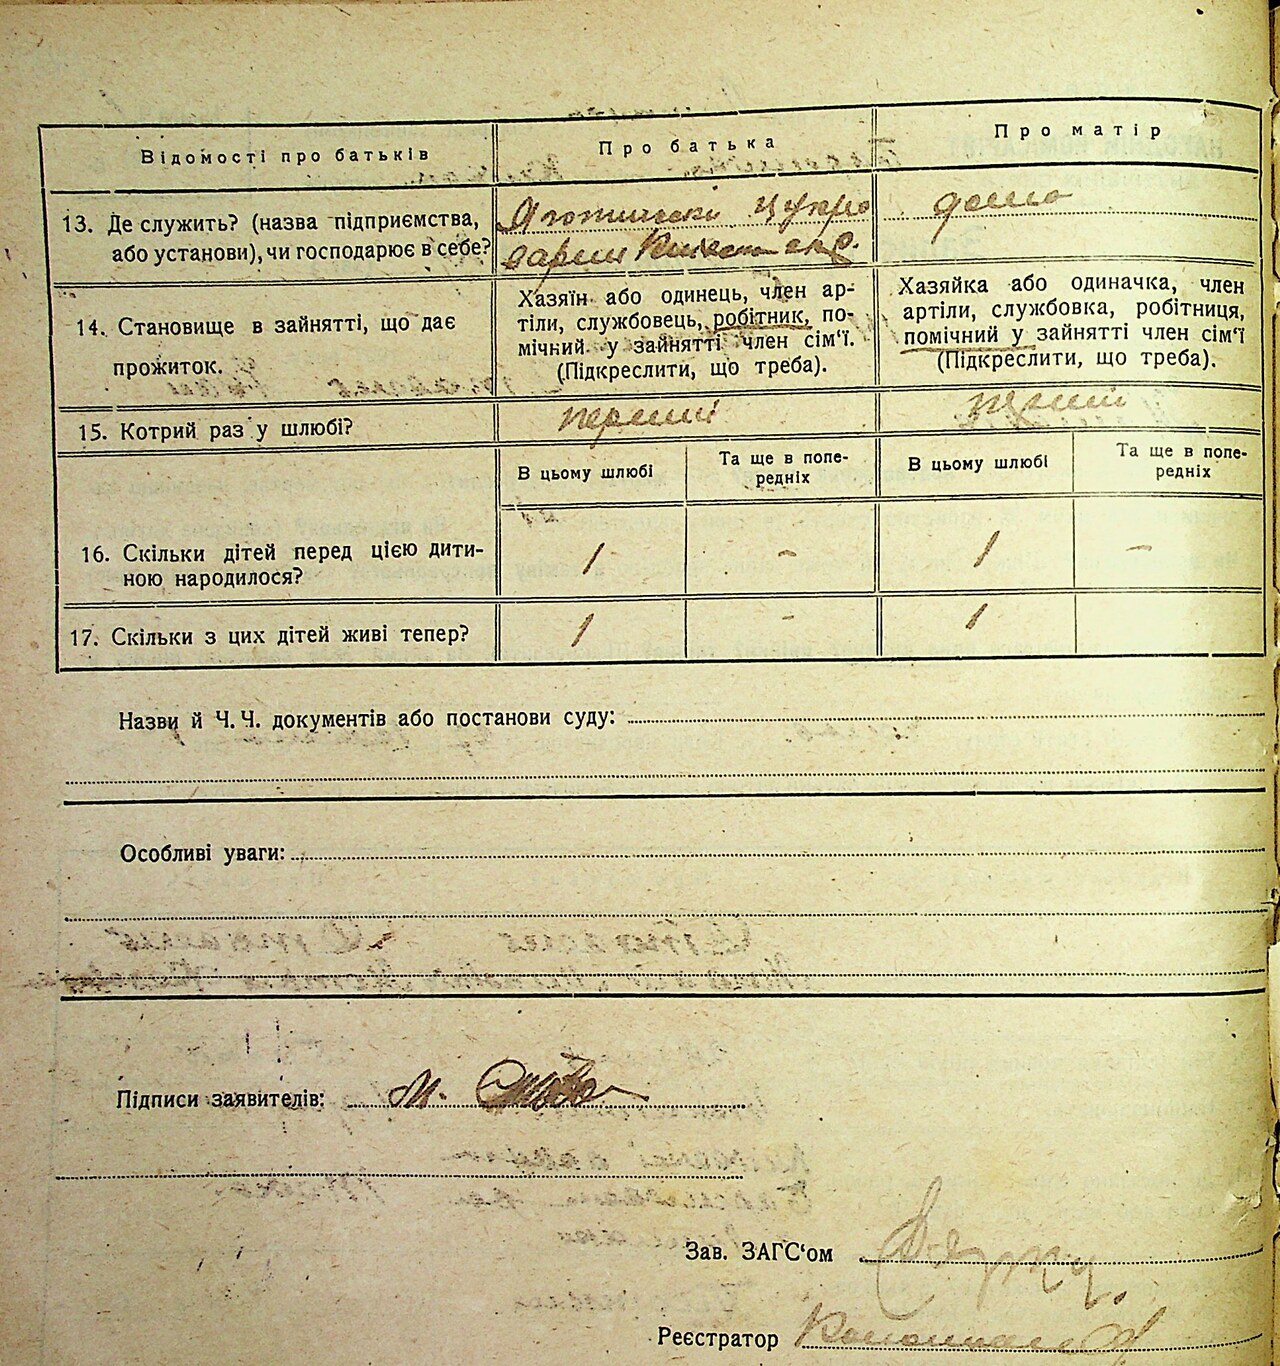 Відомості про батьків
Про батька
Про матір
13. Де служить? (назва підприємства,
або установи), чи господарює в себе?
Яготинськ цукро
варни
дома
14. Становище в зайнятті, що дає
прожиток.
Хазяїн або одинець, член ар-
тіли, службовець, робітник, по-
мічний у зайнятті член сім'ї.
(Підкреслити, що треба).
Хазяйка або одиначка, член
артіли, службовка, робітниця,
помічний у зайнятті член сім'ї
(Підкреслити, що треба).
15. Котрий раз у шлюбі?
перший
перший
В цьому шлюбі
Та ще в попе-
редніх
В цьому шлюбі
Та ще в попе-
редніх
16. Скільки дітей перед цією дити-
ною народилося?
1 - 1 -
17. Скільки з цих дітей живі тепер?
1 - 1
Назви й Ч. Ч. документів або постанови суду:
Особливі уваги:
Підписи заявителів: М.
Зав. ЗАГС'ом
Реєстратор